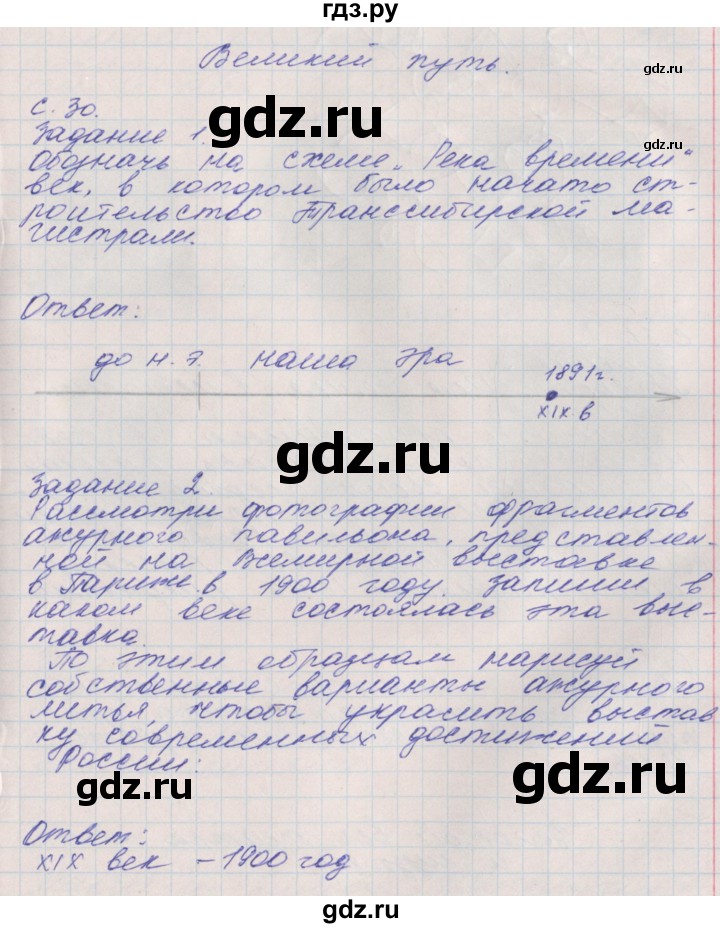 гдз.ру
Великий путь.
gdz.ru
с. 30.
gdz.ru
Задание 1.
Обозначь на схеме „Река времени"
gdz.ru
век, в котором было начато ст-
роительство Транссибирской ма-
гистрали.
Ответ:
до н. э. наша эра
1891г.
XIX в
gdz.ru
Задание 2.
Рассмотри фотографии фрагментов
ажурного павильона, представлен-
ной на Всемирной выставке
в Париже в 1900 году. Запиши в
каком веке состоялась эта выс-
тавка.
gdz.ru
По этим образцам нарисуй
собственные варианты ажурного
литья, чтобы украсить выстав
ку современных достижений
России:
gdz.ru
gdz.ru
Ответ:
XIX век – 1900 год
gdz.ru
gdz.ru